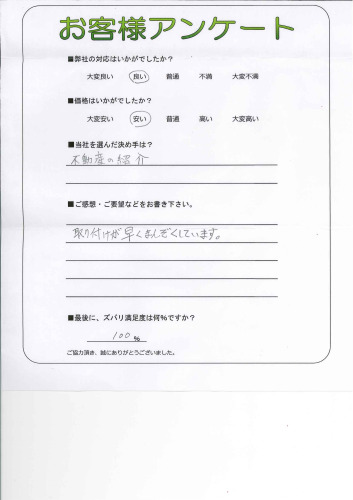 お客様アンケート
■弊社の対応はいかがでしたか？
大変良い 良い 普通 不満 大変不満
■価格はいかがでしたか？
大変安い 安い 普通 高い 大変高い
■当社を選んだ決め手は？
不動産の紹介
■ご感想・ご要望などをお書き下さい。
取り付けが早くまんぞくしています。
■最後に、ズバリ満足度は何%ですか？
100%
ご協力頂き、誠にありがとうございました。